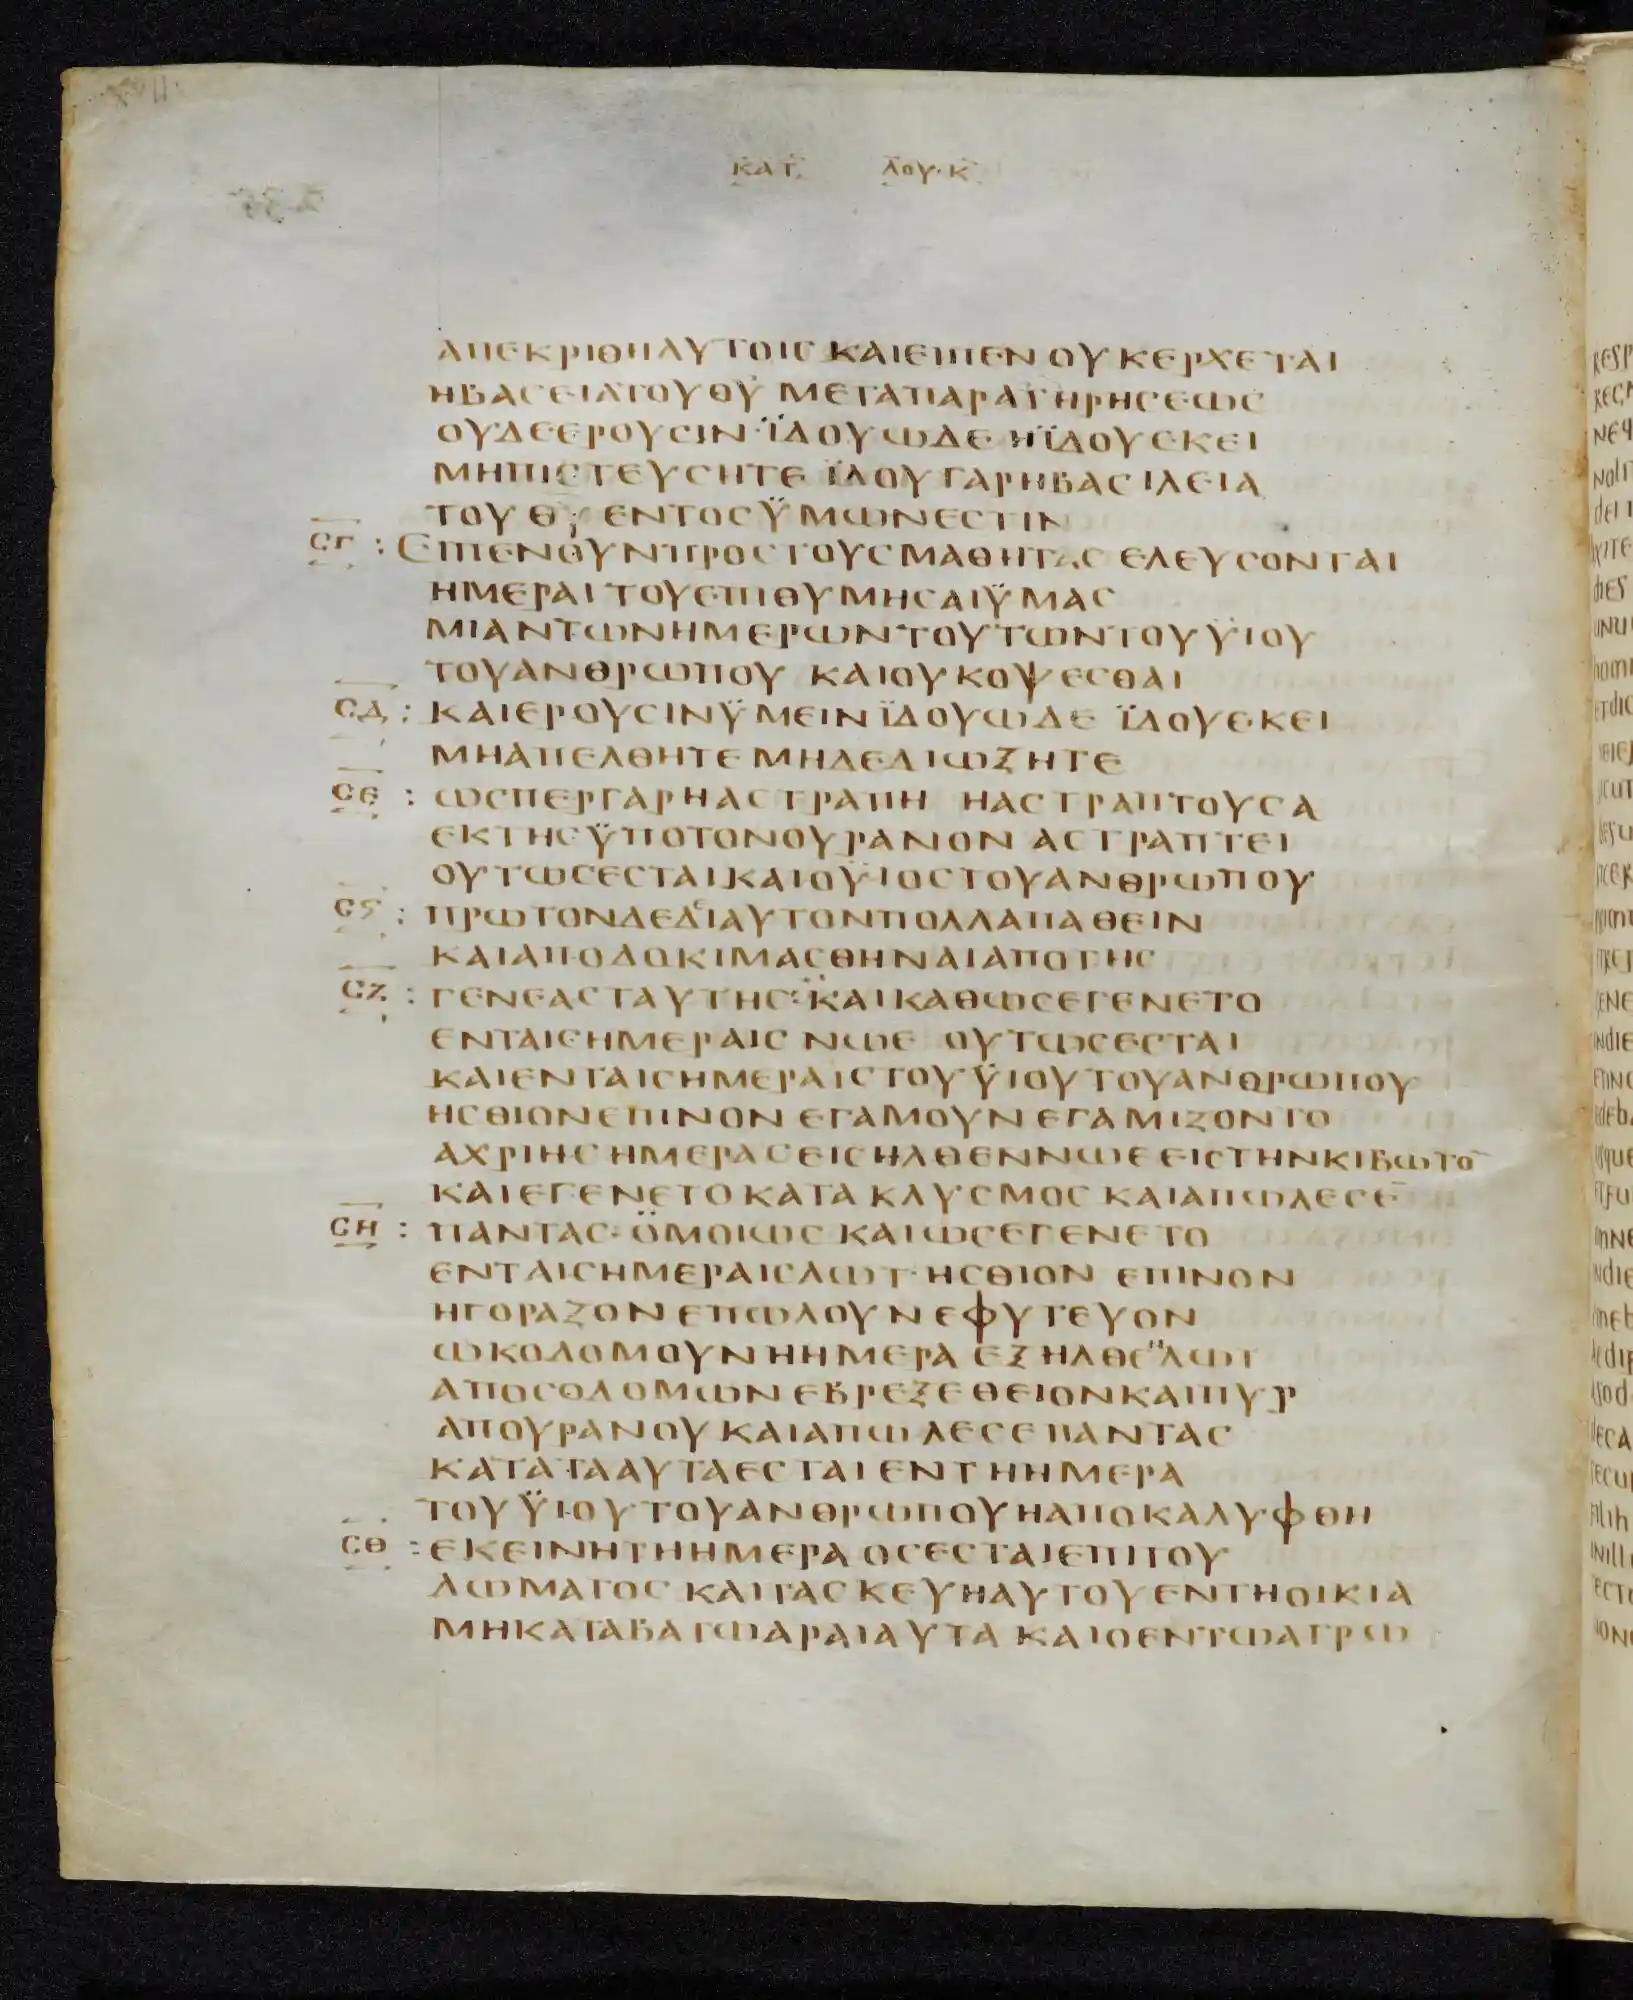 ΚΑΤ ΛΟΥΚ
ΑΠΕΚΡΙΘΗΑΥΤΟΙΣ ΚΑΙΕΙΠΕΝ ΟΥΚΕΡΧΕΤΑΙ
ΗΒΑΣΕΙΛΤΟΥΘΥ ΜΕΤΑΠΑΡΑΤΗΡΗΣΕΩΣ
ΟΥΔΕΕΡΟΥΣΙΝ·ΪΔΟΥΩΔΕ ΗΪΔΟΥΕΚΕΙ
ΜΗΠΙΣΤΕΥΣΗΤΕ ΪΔΟΥΓΑΡΗΒΑΣΙΛΕΙΑ
ΤΟΥΘΥ ΕΝΤΟΣΫΜΩΝΕΣΤΙΝ
ΣΓ : ΕΙΠΕΝΟΥΝΠΡΟΣΤΟΥΣΜΑΘΗΤΑΣ ΕΛΕΥΣΟΝΤΑΙ
ΗΜΕΡΑΙΤΟΥΕΠΙΘΥΜΗΣΑΙΫΜΑΣ
ΜΙΑΝΤΩΝΗΜΕΡΩΝΤΟΥΤΩΝΤΟΥΫΙΟΥ
ΤΟΥΑΝΘΡΩΠΟΥ ΚΑΙΟΥΚΟΨΕΣΘΑΙ
ΣΔ : ΚΑΙΕΡΟΥΣΙΝΫΜΕΙΝ ΪΔΟΥΩΔΕ ΪΔΟΥΕΚΕΙ
ΜΗΑΠΕΛΘΗΤΕΜΗΔΕΔΙΩΖΗΤΕ
ΣΕ : ΩΣΠΕΡΓΑΡΗΑΣΤΡΑΠΗ ΗΑΣΤΡΑΠΤΟΥΣΑ
ΕΚΤΗΣΫΠΟΤΟΝΟΥΡΑΝΟΝ ΑΣΤΡΑΠΤΕΙ
ΟΥΤΩΣΕΣΤΑΙΚΑΙΟΥΙΟΣΤΟΥΑΝΘΡΩΠΟΥ
ΣϚ : ΠΡΩΤΟΝΔΕΔΕΙΑΥΤΟΝΠΟΛΛΑΠΑΘΕΙΝ
ΚΑΙΑΠΟΔΟΚΙΜΑΣΘΗΝΑΙΑΠΟΤΗΣ
ΣΖ : ΓΕΝΕΑΣΤΑΥΤΗΣ: ΚΑΙΚΑΘΩΣΕΓΕΝΕΤΟ
ΕΝΤΑΙΣΗΜΕΡΑΙΣ ΝΩΕ ΟΥΤΩΣΕΣΤΑΙ
ΚΑΙΕΝΤΑΙΣΗΜΕΡΑΙΣΤΟΥΫΙΟΥΤΟΥΑΝΘΡΩΠΟΥ
ΗΣΘΙΟΝΕΠΙΝΟΝ ΕΓΑΜΟΥΝΕΓΑΜΙΖΟΝΤΟ
ΑΧΡΙΗΣΗΜΕΡΑΣΕΙΣΗΛΘΕΝΝΩΕΕΙΣΤΗΝΚΙΒΩΤΟ¯
ΚΑΙΕΓΕΝΕΤΟΚΑΤΑΚΛΥΣΜΟΣ ΚΑΙΑΠΩΛΕΣΕ¯
ΣΗ : ΠΑΝΤΑΣ·ΟΜΟΙΩΣ ΚΑΙΩΣΕΓΕΝΕΤΟ
ΕΝΤΑΙΣΗΜΕΡΑΙΣΛΩΤ·ΗΣΘΙΟΝ ΕΠΙΝΟΝ
ΗΓΟΡΑΖΟΝΕΠΩΛΟΥΝΕΦΥΤΕΥΟΝ
ΩΚΟΔΟΜΟΥΝΗΗΜΕΡΑ ΕΞΗΛΘΕΛΩΤ
ΑΠΟΣΟΔΟΜΩΝΕΒΡΕΞΕΘΕΙΟΝΚΑΙΠΥΡ
ΑΠΟΥΡΑΝΟΥΚΑΙΑΠΩΛΕΣΕΠΑΝΤΑΣ
ΚΑΤΑΤΑΑΥΤΑΕΣΤΑΙΕΝΤΗΗΜΕΡΑ
ΤΟΥΫΙΟΥΤΟΥΑΝΘΡΩΠΟΥΗΑΠΟΚΑΛΥΦΘΗ
ΣΘ : ΕΚΕΙΝΗΤΗΗΜΕΡΑ ΟΣΕΣΤΑΙΕΠΙΤΟΥ
ΔΩΜΑΤΟΣ ΚΑΙΤΑΣΚΕΥΗΑΥΤΟΥΕΝΤΗΟΙΚΙΑ
ΜΗΚΑΤΑΒΑΤΩΑΡΑΙΑΥΤΑ ΚΑΙΟΕΝΤΩΑΓΡΩ